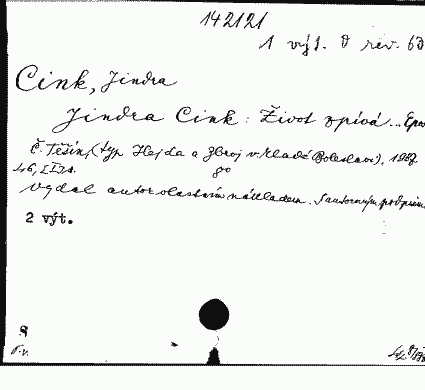 142121
1 výt. D rev. 60
Cink, Jindra
Jindra Cink: Život zpívá...
Č. Těšín, (typ Hejda a Zbroj v Mladé Boleslavi), 1937.
8°
46, II s.
Vydal autor vlastním nákladem. S autorovým podpisem
2 výt.
S